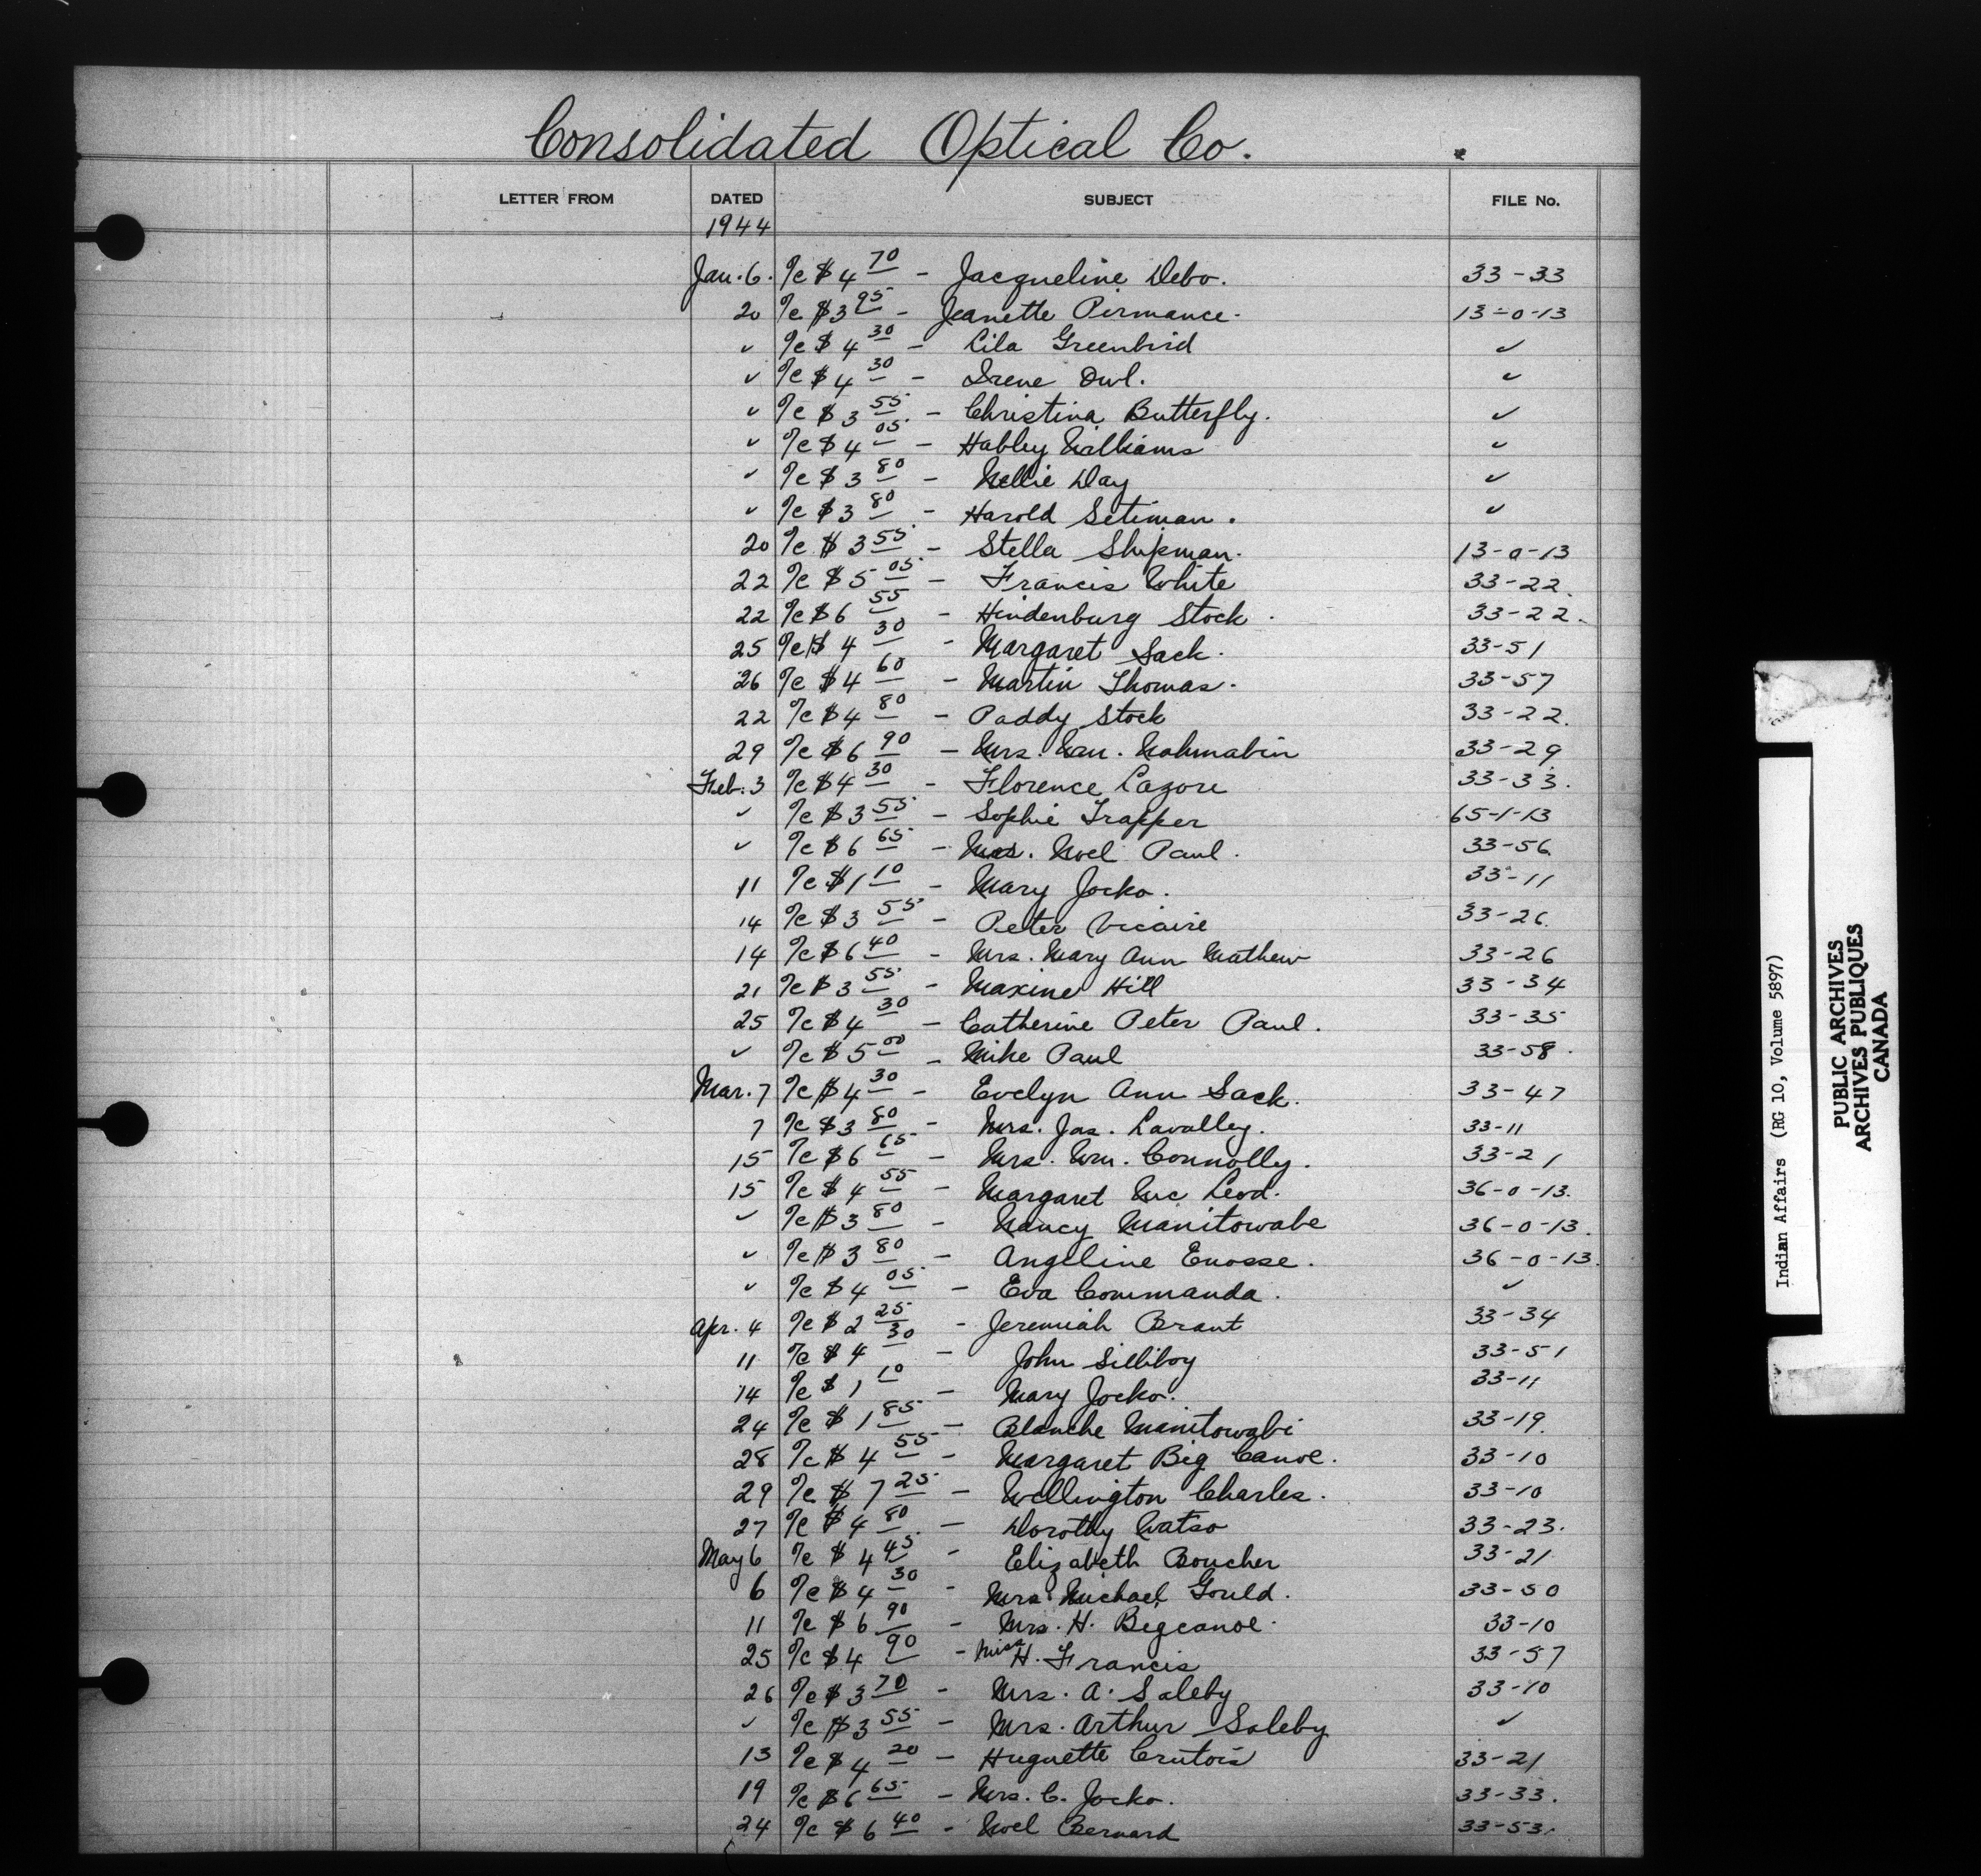 Consolidated Optical Co.
LETTER FROM DATED SUBJECT FILE No.
1944
Jan. 6. %c $4 70 - Jacqueline Debo. 33-33
20 %c $3 95 - Jeanette Pirmance. 13-0-13
✓ %c $4 30 - Lila Greenbird ✓
✓ %c $4 30 - Irene Owl. ✓
✓ %c $3 55 - Christina Butterfly. ✓
✓ %c $4 05 - Hubley Williams ✓
✓ %c $3 80 - Nellie Day ✓
✓ %c $3 80 - Harold Setiman. ✓
20 %c $3 55 - Stella Shipman. 13-0-13
22 %c $5 05 - Francis White 33-22.
22 %c $6 55 - Hindenburg Stock. 33-22.
25 %c $4 30 - Margaret Sack. 33-51
26 %c $4 60 - Martin Thomas. 33-57
22 %c $4 80 - Paddy Stock 33-22.
29 %c $6 90 - Mrs. Wm. Nahmabin 33-29
Feb. 3 %c $4 30 - Florence Lazore 33-33.
✓ %c $3 55 - Sophie Trapper 65-1-13
✓ %c $6 65 - Mrs. Noel Paul. 33-56
11 %c $1 10 - Mary Jocko. 33-11
14 %c $3 55 - Peter Vicaire 33-26.
14 %c $6 40 - Mrs. Mary Ann Mathew 33-26
21 %c $3 55 - Maxine Hill 33-34
25 %c $4 30 - Catherine Peter Paul. 33-35
✓ %c $5 00 - Mike Paul 33-58.
Mar. 7 %c $4 30 - Evelyn Ann Sack. 33-47
7 %c $3 80 - Mrs. Jas. Lavalley. 33-11
15 %c $6 65 - Mrs. Wm. Connolly. 33-21
15 %c $4 55 - Margaret Mc Leod. 36-0-13.
✓ %c $3 80 - Nancy Manitowabe 36-0-13.
✓ %c $3 80 - Angeline Enosse. 36-0-13.
✓ %c $4 05 - Eva Commanda. ✓
Apr. 4 %c $2 25 - Jeremiah Brant 33-34
11 %c $4 30 - John Silliboy 33-51
14 %c $1 10 - Mary Jocko. 33-11
24 %c $1 85 - Blanche Manitowabi 33-19.
28 %c $4 55 - Margaret Big Canoe. 33-10
29 %c $7 25 - Wellington Charles. 33-10
27 %c $4 80 - Dorothy Watso 33-23.
May 6 %c $4 45 - Elizabeth Boucher 33-21
6 %c $4 30 - Mrs Michael Gould. 33-50
11 %c $6 90 - Mrs. H. Bigcanoe. 33-10
25 %c $4 90 - Miss H. Francis 33-57
26 %c $3 70 - Mrs. A. Soleby 33-10
✓ %c $3 55 - Mrs. Arthur Soleby ✓
13 %c $4 20 - Huguette 33-21
19 %c $6 65 - Mrs. C. Jocko. 33-33.
24 %c $6 40 - Noel Bernard 33-53.
Indian Affairs (RG 10, Volume 5897)
PUBLIC ARCHIVES
ARCHIVES PUBLIQUES
CANADA